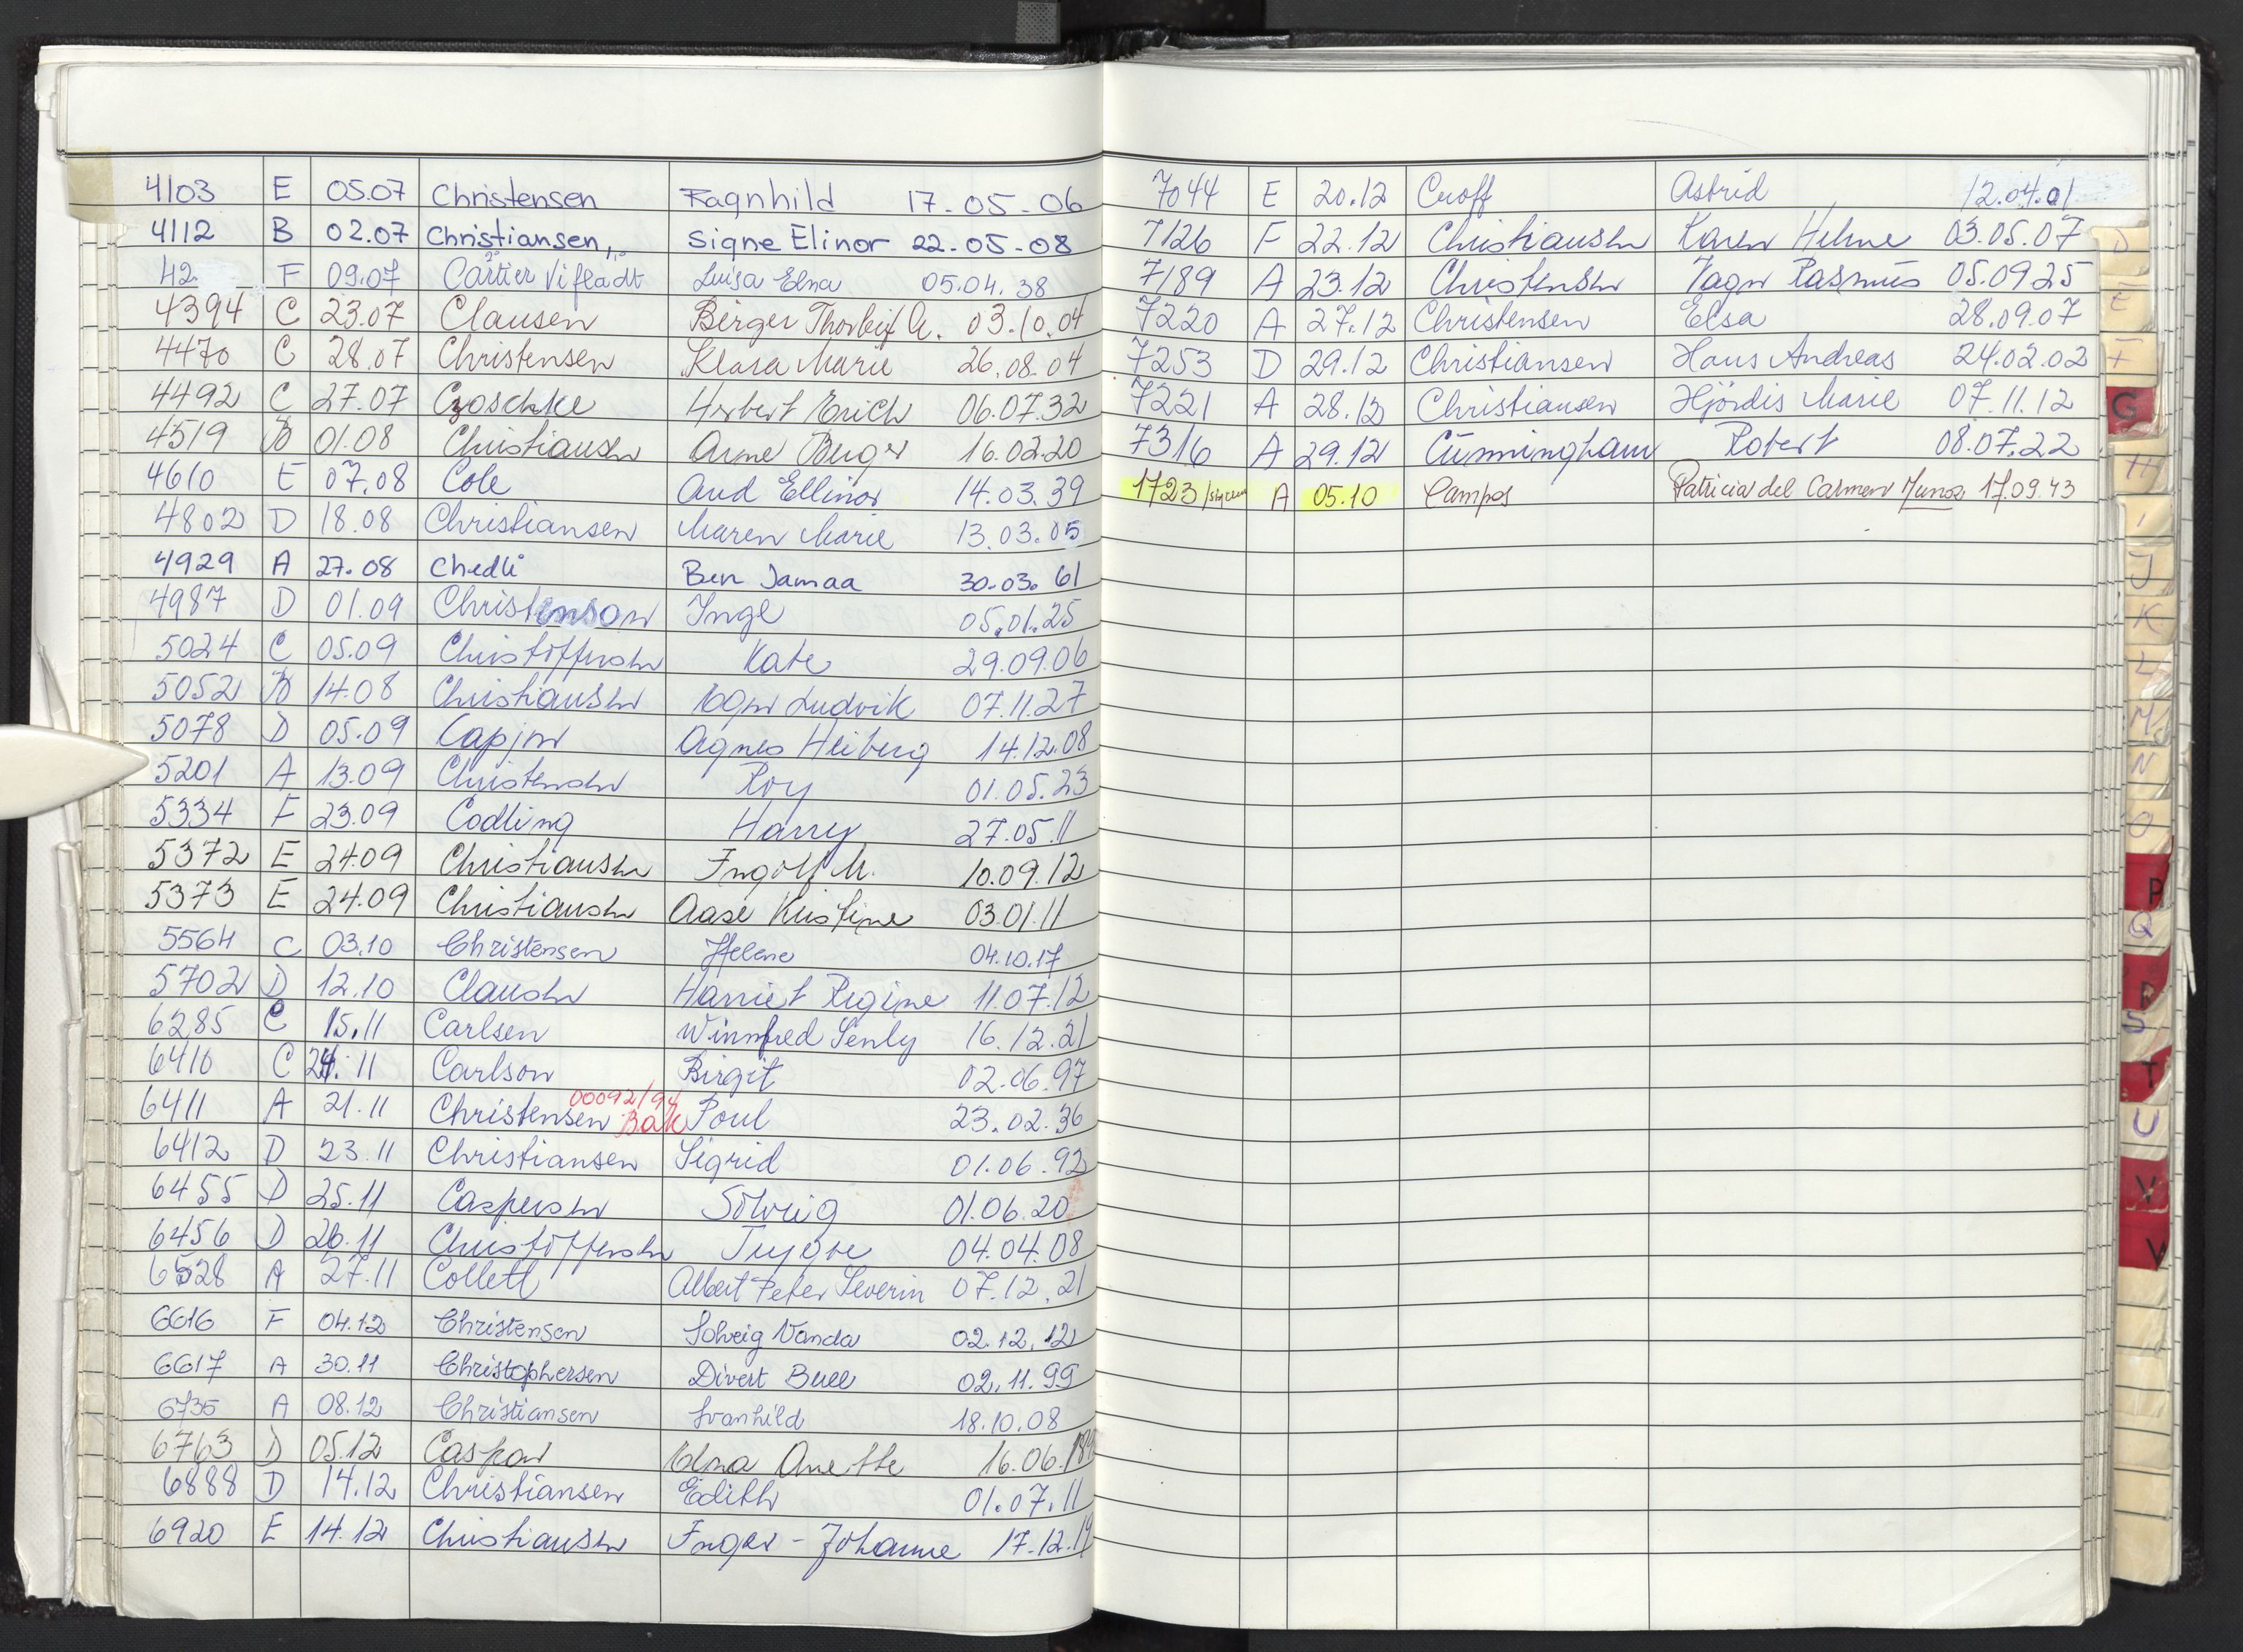 4103 E 05.07 Christensen Ragnhild 17-05-06
4112 B 02.07 Christiansen, Signe Elinor 22-05-08
42 F 09.07 Cartier Vifladt Luisa Elna 05.04.38
4394 C 23.07 Clausen Birger Thorleif A. 03.10.04
4470 C 28.07 Christensen Klara Marie 26.08.04
4492 C 27.07 Czoschke Herbert Erich 06.07.32
4519 B 01.08 Christiansen Arne Berger 16.02.20
4610 E 07.08 Cole Aud Ellinor 14.03.39
4802 D 18.08 Christiansen Maren Marie 13.03.05
4929 A 27.08 Chedli Ben Jamaa 30.03.61
4987 D 01.09 Christenson Inge 05.01.25
5024 C 05.09 Christoffersen Kate 29.09.06
5052 B 14.08 Christiansen Roger Ludvik 07.11.27
5078 D 05.09 Capjon Agnes Heiberg 14.12.08
5201 A 13.09 Christensen Roy 01.05.23
5334 F 23.09 Codling Harry 27.05.11
5372 E 24.09 Christiansen Ingolf M. 10.09.12
5373 E 24.09 Christiansen Aase Kristine 03.01.11
5564 C 03.10 Christensen Helene 04.10.17
5702 D 12.10 Clausen Harriet Regine 11.07.12
6285 C 15.11 Carlsen Winnfred Senly 16.12.21
6410 C 24.11 Carlson Birgit 02.06.97
00092/94
6411 A 21.11 Christensen Bak Poul 23.02.36
6412 D 23.11 Christiansen Sigrid 01.06.92
6455 D 25.11 Caspersen Solveig 01.06.20
6456 D 26.11 Christoffersen Trygve 04.04.08
6528 A 27.11 Collett Albert Peter Severin 07.12.21
6616 F 04.12 Christensen Solveig Vanda 02.12.12
6617 A 30.11 Christophersen Divert Bull 02.11.99
6735 A 08.12 Christiansen Svanhild 18.10.08
6763 D 05.12 Caspar Edna Anette 16.06
6888 D 14.12 Christiansen Edith 01.07.11
6920 E 14.12 Christiansen Inger-Johanne 17.12.19
7044 E 20.12 Cuoff Astrid 12.04.01
7126 F 22.12 Christiansen Karen Helene 03.05.07
7189 A 23.12 Christensen Vagn Rasmus 05.09.25
7220 A 27.12 Christensen Elsa 28.09.07
7253 D 29.12 Christiansen Hans Andreas 24.02.02
7221 A 28.12 Christiansen Hjördis Marie 07.11.12
7316 A 29.12 Cunningham Robert 08.07.22
1723 A 05.10 Campos Patricia del Carmen Munoz 17.09.43
D
E
F
G
H
I
J
K
L
M
N
O
P
Q
R
S
T
U
V